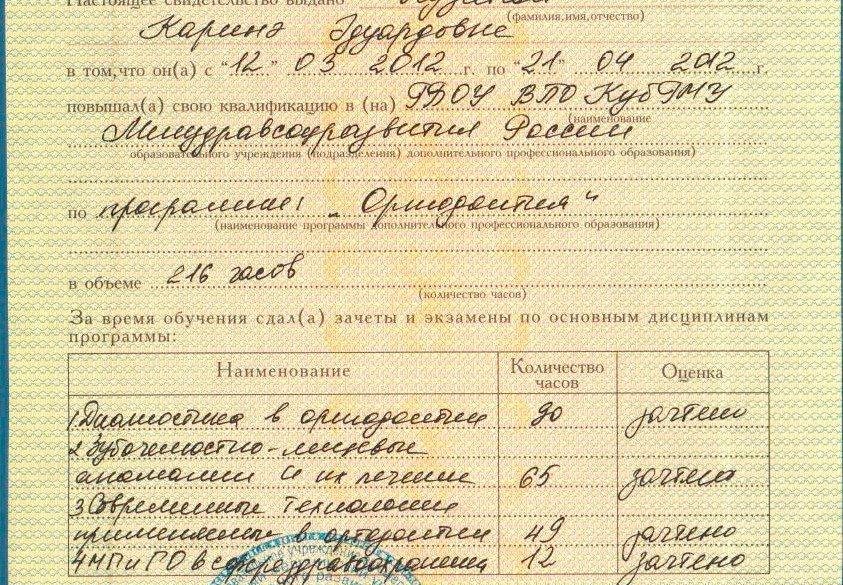 Настоящее свидетельство выдано
(фамилия,имя,отчество)
Карине Эдуардовне
в том,что он(а) с "12" 03 2012 г. по "21" 04 2012 г.
повышал(а) свою квалификацию в (на) ГБОУ ВПО КубГМУ
(наименование
Минздравсоцразвития России
образовательного учреждения (подразделения) дополнительного профессионального образования)
по программе: „Ортодонтия"
(наименование программы дополнительного профессионального образования)
в объеме 216 часов
(количество часов)
За время обучения сдал(а) зачеты и экзамены по основным дисциплинам
программы:
Наименование Количество часов Оценка
1. Диагностика в ортодонтии 90 зачтено
2 Зубочелюстно-лицевые
аномалии и их лечение 65 зачтено
3 Современные технологии
применяемые в ортодонтии 49 зачтено
4 МП и ГО в здравоохранения 12 зачтено